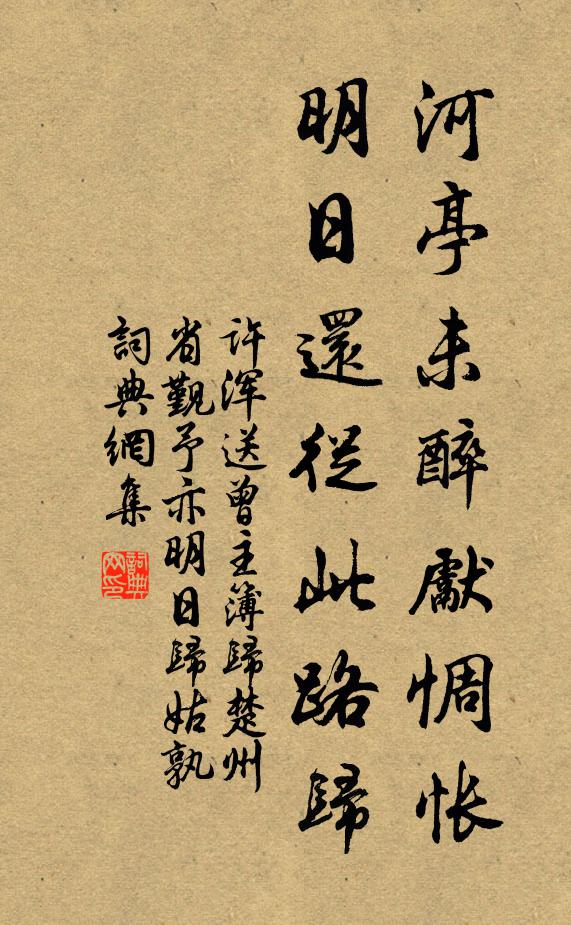 河亭未醉獻惆悵
明日還從此路歸
許渾送曾主簿歸楚州
省覲予亦明日歸姑孰
詞典網集
詞典网印